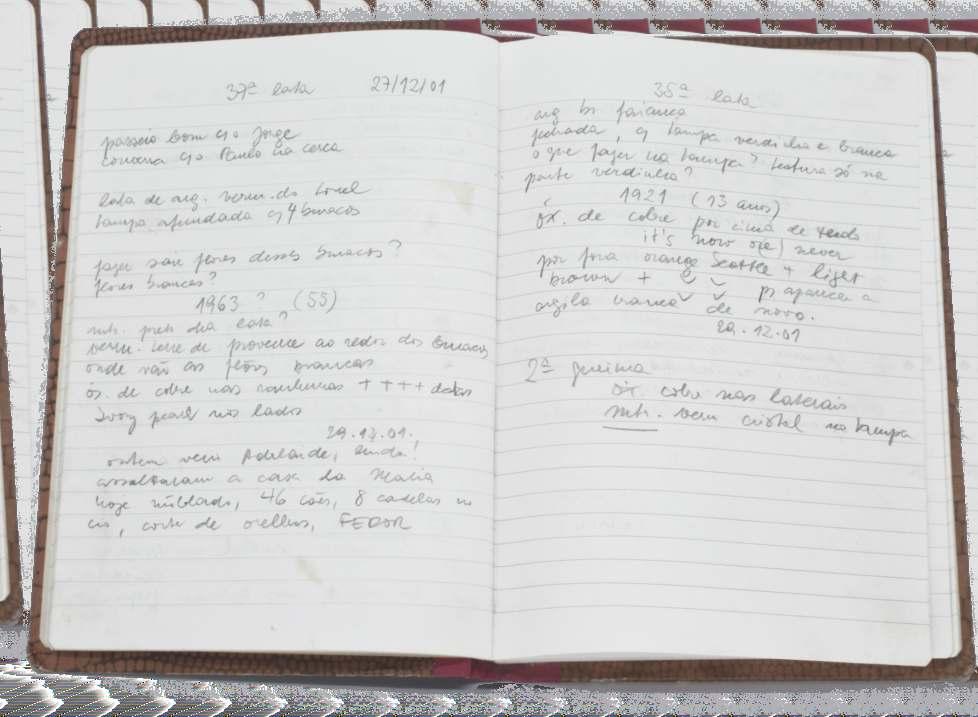 37ª lata 27/12/01
passeio bom c/o Jorge
conversa c/o Paulo na cerca
lata de arg. verm. do tonel
tampa afundada c/ 4 buracos
fazer sair flores desses buracos?
flores brancas?
1963? (55)
mtr. preta na lata?
verm. terre de provence ao redor dos buracos
onde vão as flores brancas
óx. de cobre nas ++++ delas
Ivory pearl nos lados
29.12.01.
ontem veio Adelaide, linda!
assaltaram a casa da Maria
hoje nublado, 46 cães, 8 cadelas no
cio, corte de orelhas, FEDOR
35ª lata
arg br faiança
fechada, c/ tampa verdinha e branca
o que fazer na tampa? textura só na
parte verdinha?
1921 (13 anos)
óx. de cobre por cima de tudo
it's now or never
por fora orange Scottle + light
brown + p/ aparecer a
argila branca de novo.
29.12.01
2ª queima
óx. cobre nas laterais
mtr. bem cristal na tampa